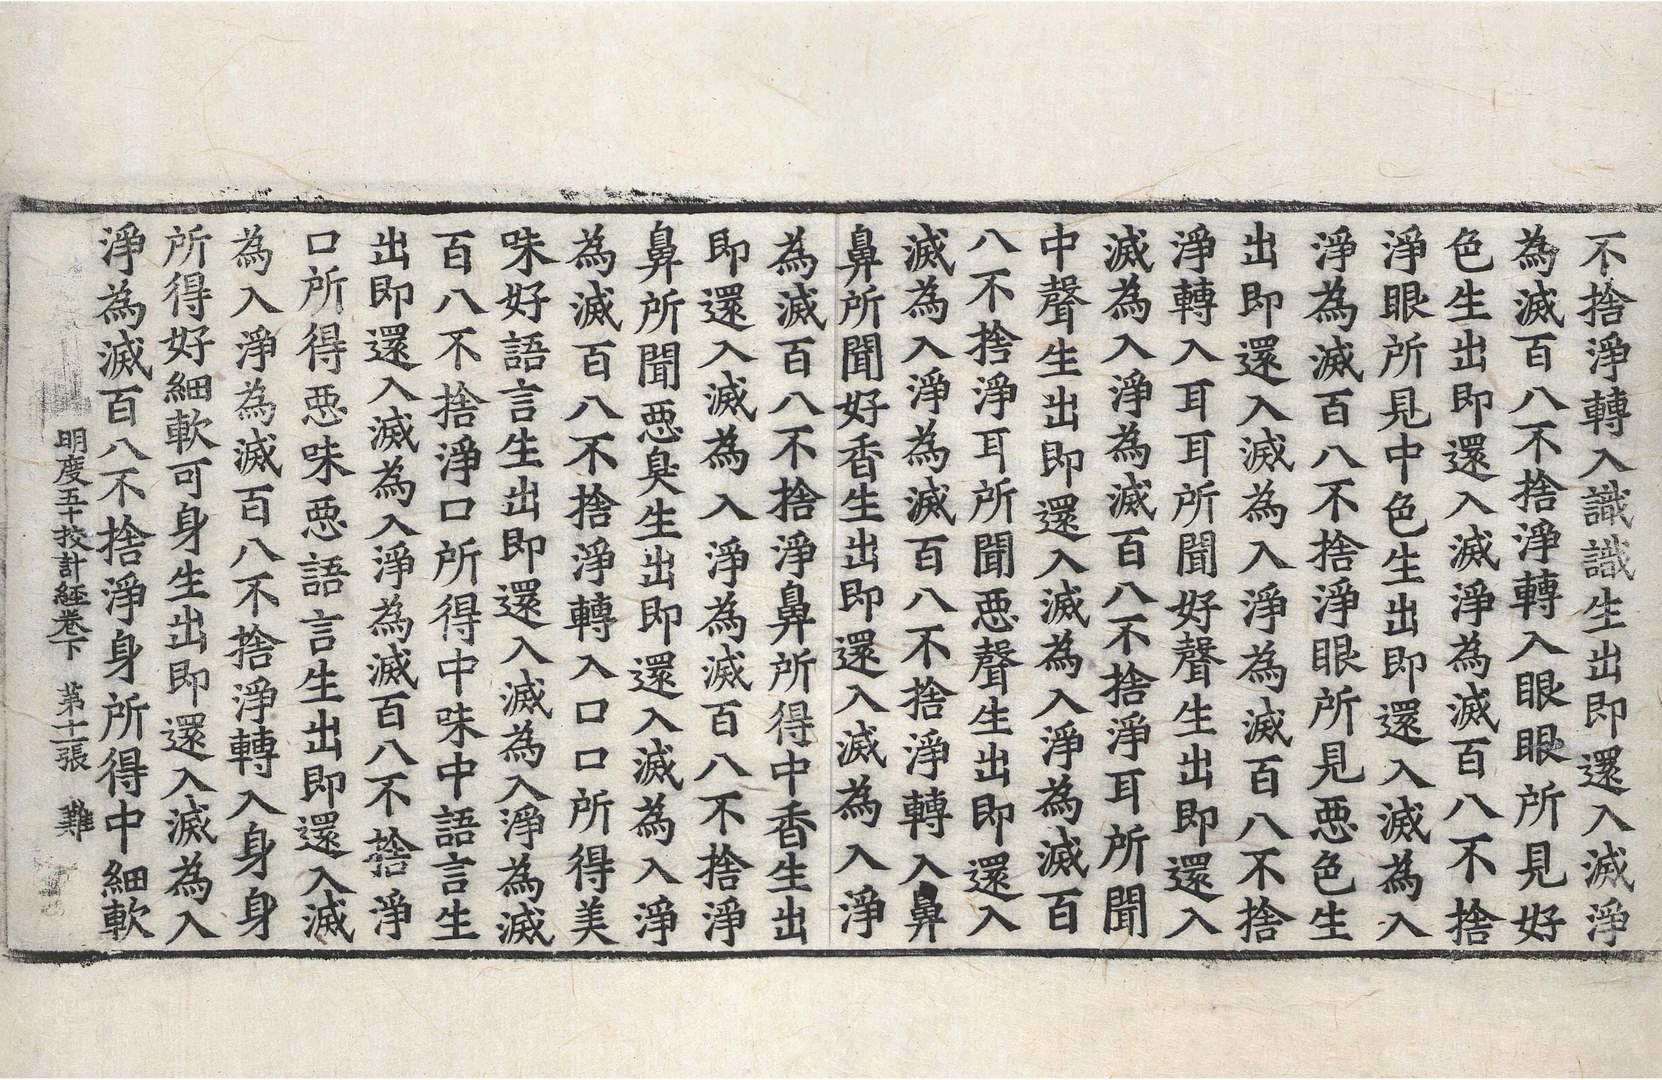 不捨淨轉入識識生出即還入滅淨
為滅百八不捨淨轉入眼眼所見好
色生出即還入滅淨為滅百八不捨
淨眼所見中色生出即還入滅為入
淨為滅百八不捨淨眼所見惡色生
出即還入滅為入淨為滅百八不捨
淨轉入耳耳所聞好聲生出即還入
滅為入淨為滅百八不捨淨耳所聞
中聲生出即還入滅為入淨為滅百
八不捨淨耳所聞惡聲生出即還入
滅為入淨為滅百八不捨淨轉入鼻
鼻所聞好香生出即還入滅為入淨
為滅百八不捨淨鼻所得中香生出
即還入滅為入淨為滅百八不捨淨
鼻所聞惡臭生出即還入滅為入淨
為滅百八不捨淨轉入口口所得美
味好語言生出即還入滅為入淨為滅
百八不捨淨口所得中味中語言生
出即還入滅為入淨為滅百八不捨淨
口所得惡味惡語言生出即還入滅
為入淨為滅百八不捨淨轉入身身
所得好細軟可身生出即還入滅為入
淨為滅百八不捨淨身所得中細軟
明度五十校計經卷下 第十一張 難